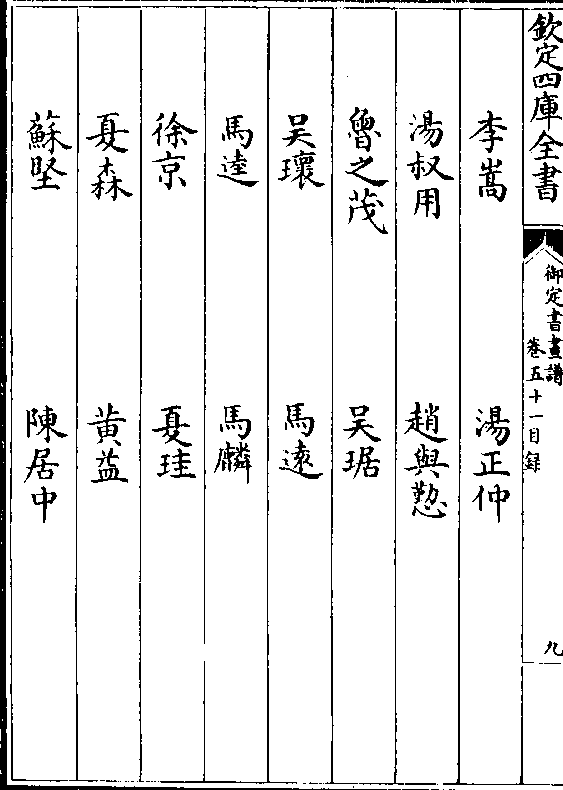 欽定四庫全書
御定書畫譜
卷五十一目録
九
李嵩　湯正仲
湯叔用　趙與懃
魯之茂　吳琚
吳瓌　馬遠
馬逵　馬麟
徐京　夏珪
夏森　黃益
蘇堅　陳居中